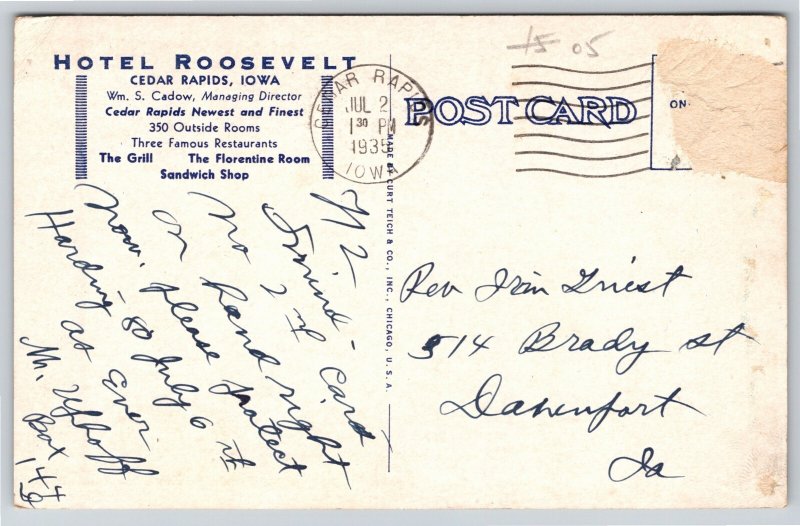 HOTEL ROOSEVELT
CEDAR RAPIDS, IOWA
Wm. S. Cadow, Managing Director
Cedar Rapids Newest and Finest
350 Outside Rooms
Three Famous Restaurants
The Grill The Florentine Room
Sandwich Shop
CEDAR RAPIDS
JUL 2
1 30 PM
1935
IOWA
POST CARD
15 05
ON
MADE BY CURT TEICH & CO., INC., CHICAGO, U.S.A.
Friend - Card
no 2nd
on hand right
now. please protect
Harding 80 July 6th
at
Box 144
Rev Griest
514 Brady st
Davenport
Ia